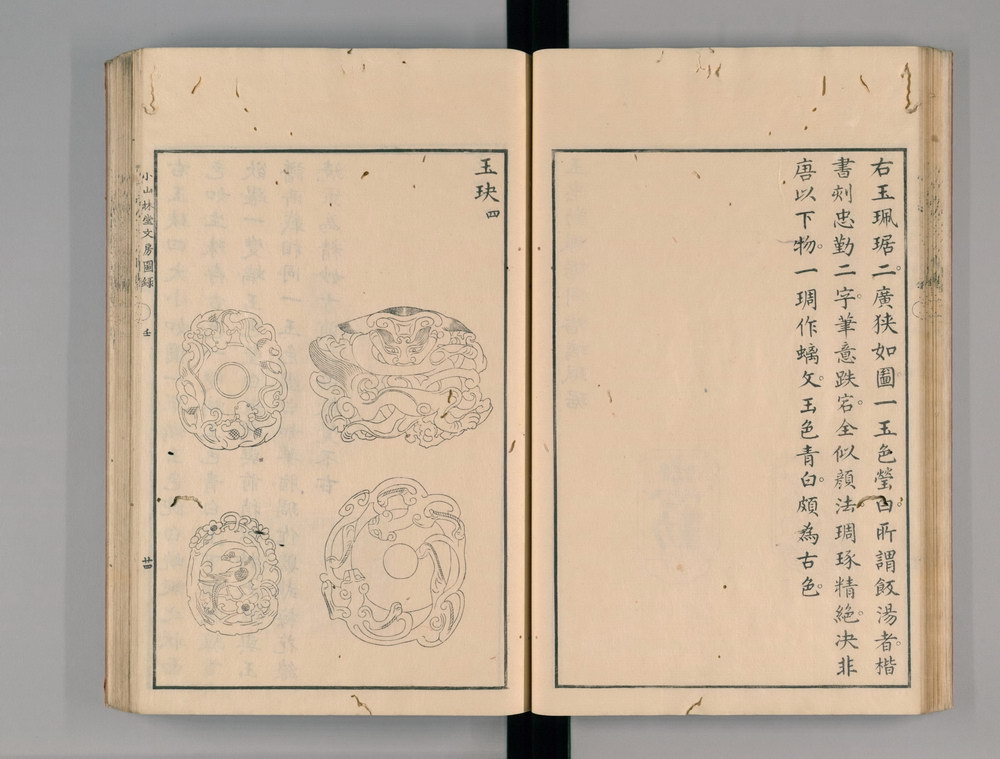 右玉珮琚二。廣狹如圖。一玉色瑩白。所謂飯湯者。楷
書刻忠勤二字。筆意跌宕。全似顔法。琱琢精絶。决非
唐以下物。一琱作螭文。玉色青白。頗為古色。
玉玦四
小山林堂文房圖録
壬
廿四